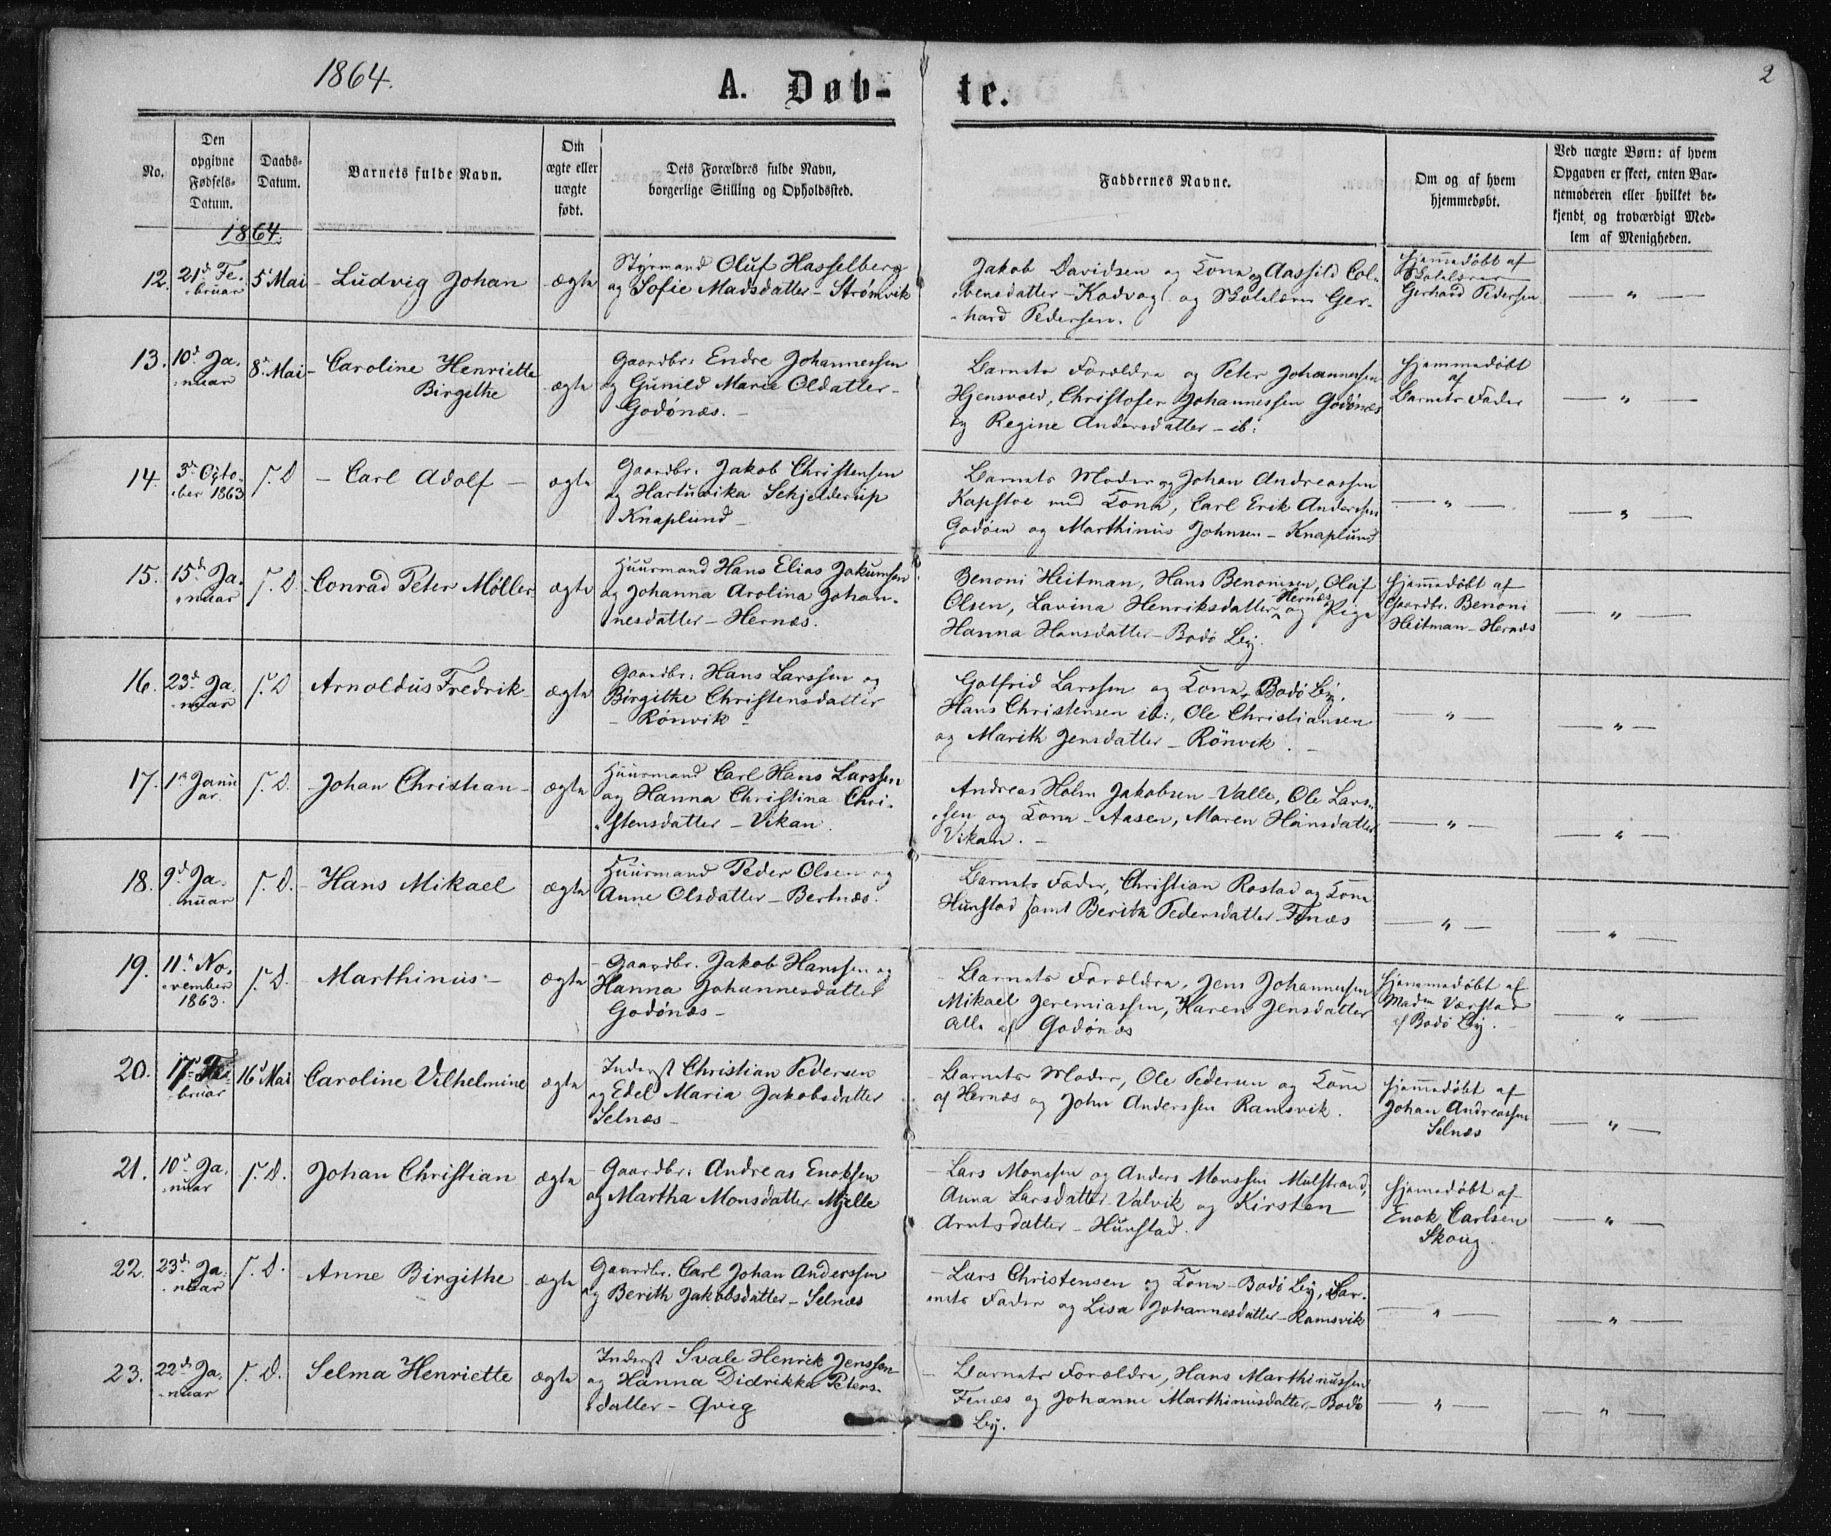 1864.
A. Døb-
te.
2
No.
Den
opgivne
Fødsels-
Datum.
Daabs-
Datum.
Barnets fulde Navn.
Om
ægte eller
uægte
født.
Dets Forældres fulde Navn,
borgerlige Stilling og Opholdssted.
Faddernes Navne.
Om og af hvem
hjemmedøbt.
Ved uægte Børn: af hvem
Opgaven er skeet, enten Bar-
nemoderen eller hvilket be-
kjendt og troværdigt Med-
lem af Menigheden.
1864.
12. 21d Fe-
bruar
5' Mai
Ludvig Johan
ægte
Styrmand Oluf Hasselberg
og Sofie Madsdatter – Strømvik
Jakob Davidsen og Kone og Aashild Col-
bensdatter – Kodvag og Skolelærer Ger-
hard Pedersen.
Hjemmedøbt af
Skolelærer
Gerhard Pedersen
— " —
13. 10d Ja-
nuar
8' Mai
Caroline Henriette
Birgithe
ægte
Gaardbr: Endre Johannessen
og Gunild Marie Oldatter –
Godønæs. –
Barnets Forældre og Peter Johannessen
Hjensvold, Christofer Johannessen Godønæs
og Regine Andersdatter – ib:
Hjemmedøbt
af
Barnets Fader
— " —
14. 3d Octo-
ber 1863
s. D
– Carl Adolf –
ægte
Gaardbr: Jakob Christensen
og Hartuvika Schjelderup
Knaplund –
Barnets Moder og Johan Andreassen
Kapstoe med Kone, Carl Erik Anderssen
Godøen og Marthinus Johnsen – Knaplund
— " —
— " —
15. 15d Ja-
nuar
s. D
Conrad Peter Møller
ægte
Huusmand Hans Elias Jakumsen
og Johanna Arolina Johan-
nesdatter – Hernæs.
Benoni Heitman, Hans Benonisen, Oluf
Olsen, Lavina Henriksdatter Hernæs og Pige
Hanna Hansdatter – Bodø By.
Hjemmedøbt af
Gaardbr. Benoni
Heitman – Hernæs
— " —
16. 23d Ja-
nuar
s. D
Arnoldus Fredrik
ægte
Gaardbr: Hans Larssen og
Birgithe Christensdatter
– Rönvik –
Gotfrid Larssen og Kone – Bodø By,
Hans Christensen ib:, Ole Christiansen
og Marith Jensdatter – Rönvik. –
— " —
— " —
17. 1ste Janu
ar.
s. D.
Johan Christian
ægte
Huusmand Carl Hans Larssen
og Hanna Christina Chri-
stensdatter – Vikan.
Andreas Holm Jakobsen – Valle, Ole Lars-
sen og Kone – Aasen, Maren Hansdatter
Vikan. –
— " —
— " —
18. 9d Ja-
nuar
s. D.
Hans Mikael
ægte
Huusmand Peder Olsen og
Anne Olsdatter – Bertnæs.
Barnets Fader, Christian Rostad og Kone
Hunstad samt Berith Pedersdatter – Fenæs
— " —
— " —
19. 11te No-
vember
1863.
s. D.
Marthinus –
ægte
– Gaardbr. Jakob Hanssen og
Hanna Johannesdatter
Godønæs –
– Barnets Forældre, Jens Johannessen
Mikael Jeremiassen, Karen Jensdatter
Alle af Godønæs
Hjemmedøbt af
Madm Værstad
af Bodø By.
— " —
20. 17d Fe-
bruar
16d Mai
Caroline Vilhelmine
ægte
Inderst Christian Pedersen
og Edel Maria Jakobsdatter
Selnæs –
– Barnets Moder, Ole Pedersen og Kone
af Hernæs og John Anderssen Ramsvik.
Hjemmedøbt af
Johan Andreassen
Selnæs
— " —
21. 10d Ja-
nuar
s. D.
Johan Christian
ægte
– Gaardbr: Andreas Enoksen
og Martha Monsdatter Mjelle
– Lars Monssen og Anders Monssen Mulstrand,
Anna Larsdatter – Valvik og Kirsten
Arntsdatter – Hunstad.
Hjemmedøbt af
Enok Carlsen
Skoug.
— " —
22. 23d Ja-
nuar
s. D.
Anne Birgithe
ægte
Gaardbr. Carl Johan Anderssen
og Berith Jakobsdatter – Selnæs
– Lars Christensen og Kone – Bodø By, Bar-
nets Fader og Lisa Johannesdatter – Ramsvik
— " —
— " —
23. 22d Ja-
nuar
s. D.
Selma Henriette
ægte
Inderst Svale Henrik Jenssen
og Hanna Didrikka Peters-
datter – Qvig
– Barnets Forældre, Hans Marthinussen
Fenæs og Johanne Marthinusdatter – Bodø
By.
— " —
— " —